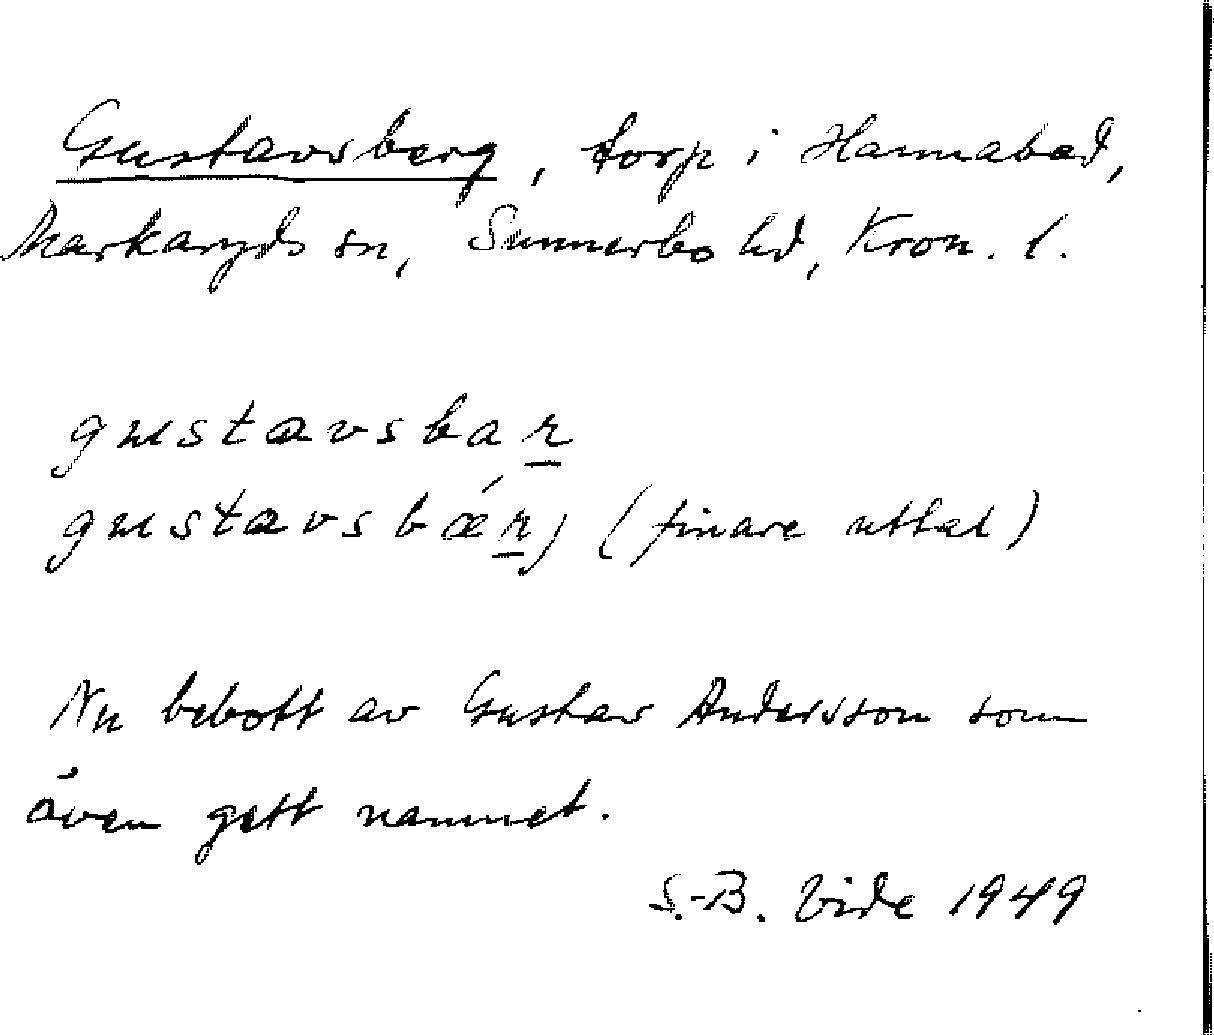 Gustavsberg, torp i Hannabad,
Markaryds sn, Sunnerbo hd, Kron. l.
gustavsbar
gustavsbǽrj (finare uttal)
Nu bebott av Gustav Andersson som
även gett namnet.
S.-B. Vide 1949